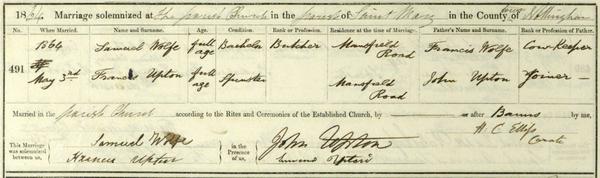 1864. Marriage solemnized at The parish Church in the parish of Saint Mary in the County of Nottingham
No. When Married. Name and Surname. Age. Condition. Rank or Profession. Residence at the time of Marriage. Father's Name and Surname. Rank or Profession of Father.
491 1864 May 3rd Samuel Wolfe full age Bachelor Butcher Mansfield Road Francis Wolfe Cow Keeper
Frances Upton full age Spinster Mansfield Road John Upton Joiner
Married in the parish Church according to the Rites and Ceremonies of the Established Church, by after Banns by me,
H. C. Ellis Curate
This Marriage was solemnized between us, Samuel Wolfe Francis Upton in the Presence of us, John Upton